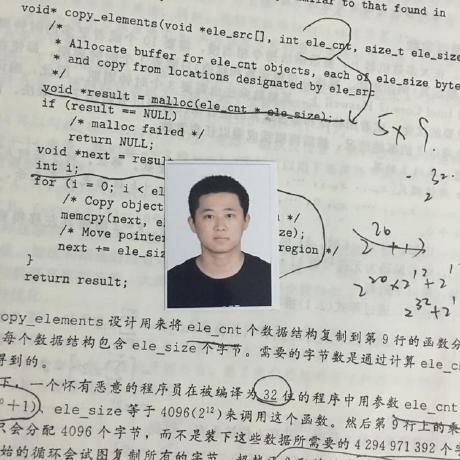 similar to that found in
void* copy_elements(void *ele_src[], int ele_cnt, size_t ele_size
/*
* Allocate buffer for ele_cnt objects, each of ele_size byte
* and copy from locations designated by ele_src
*/
void *result = malloc(ele_cnt * ele_size);
if (result == NULL)
/* malloc failed */
return NULL;
void *next = result
int i;
for (i = 0; i < el
/* Copy object */
memcpy(next, e size);
/* Move pointe region */
next += ele_siz
}
return result;
5×
32
2
20
2²⁰×2¹²+2¹²
2³²+2¹
copy_elements 设计用来将 ele_cnt 个数据结构复制到第 9 行的函数分
每个数据结构包含 ele_size 个字节。需要的字节数是通过计算 ele_cn
得到的。
下,一个怀有恶意的程序员在被编译为 32 位的程序中用参数 ele_cnt
⁰+1)、ele_size 等于 4096(2¹²)来调用这个函数。然后第 9 行上的乘
只会分配 4096 个字节,而不是装下这些数据所需要的 4 294 971 392 个字
始的循环会试图复制所有的字节,超